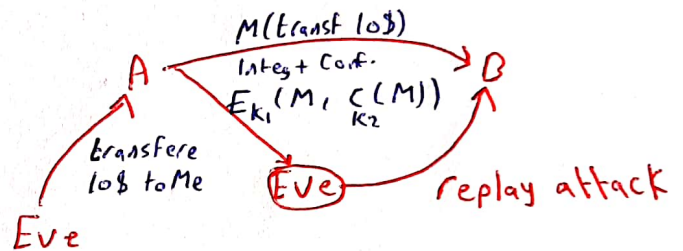 M(transf 10$)
A
B
Integ + Conf.
E K1 (M, C K2 (M))
transfere
10$ to Me
Eve
replay attack
Eve